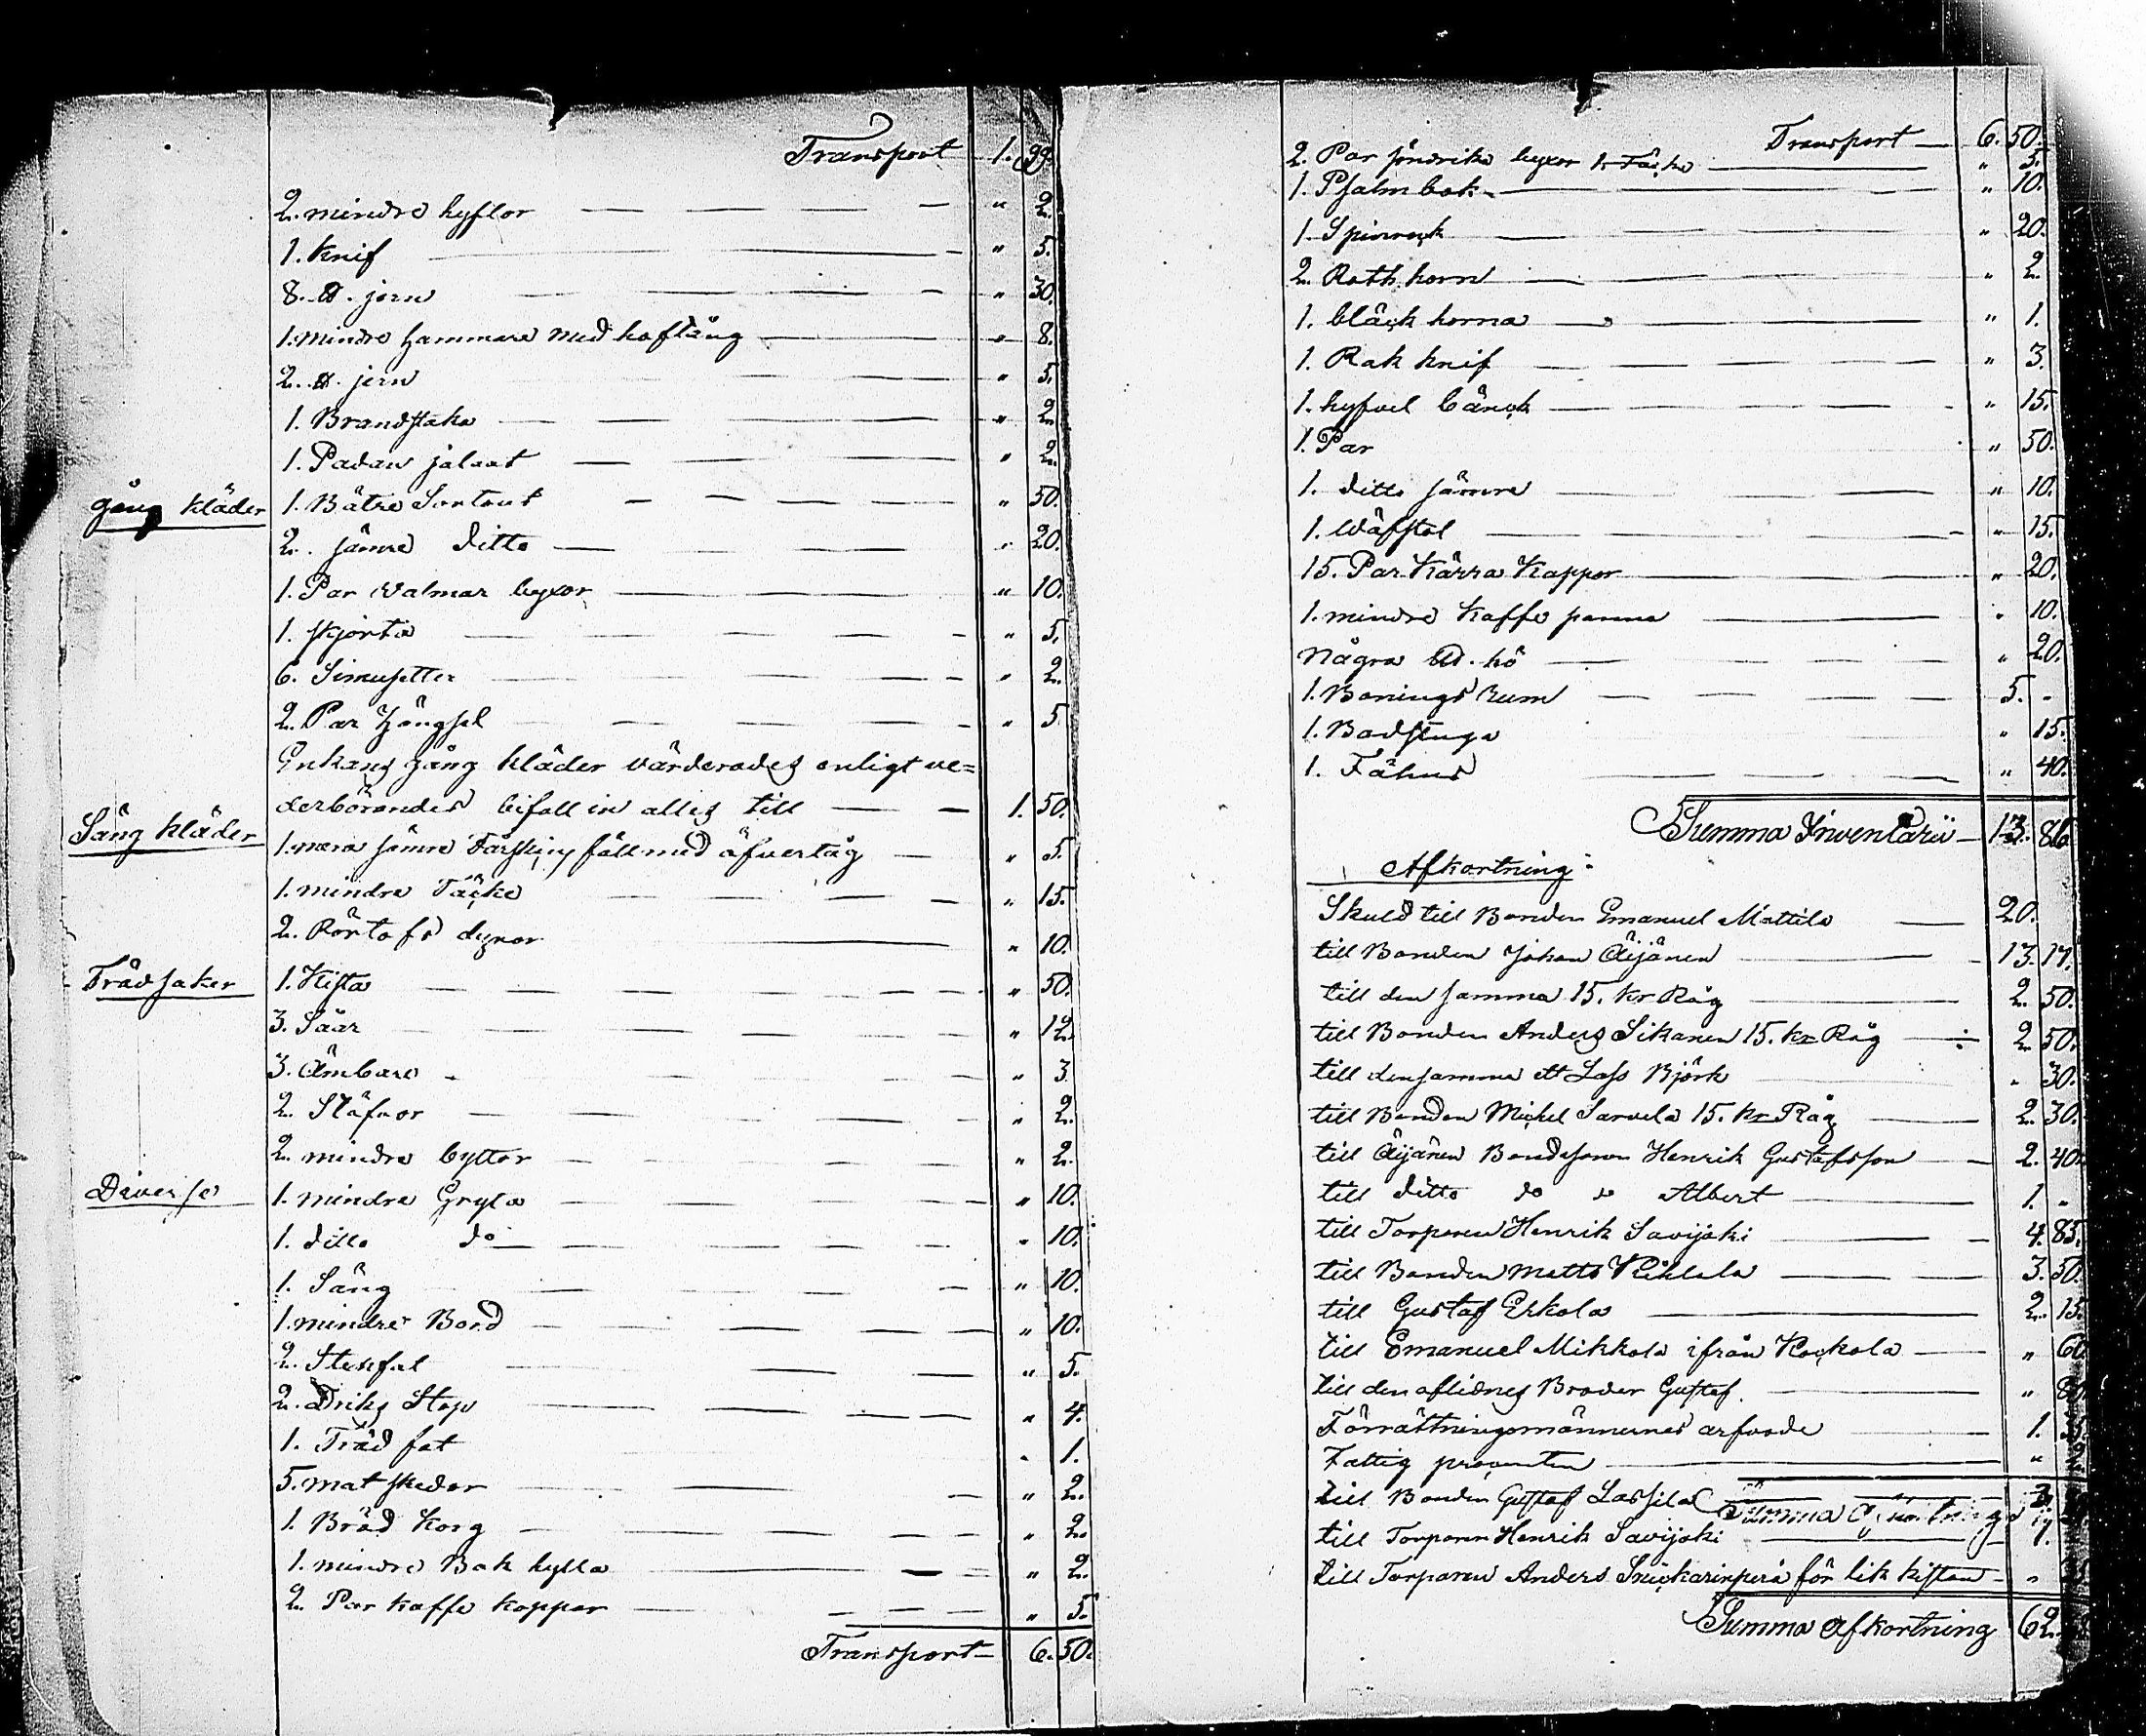 Transport 1. 99.
2. mindre hyflor " 2.
1. Knif " 5.
8. ℔. jern " 30.
1. mindre hammare med haftång " 8.
2. ℔. jern " 5.
1. Brandstake " 2.
1. Padan jalaat " 2.
gång kläder 1. Bätre Sortout " 50.
2. sämre ditto " 20.
1. Par Walmar byxor " 10.
1. skjorta " 5.
6. " 2.
2. Par Hängsel " 5
Enkans gång kläder värderades enligt ve=
derbörandes bifall in alles till 1. 50.
Säng kläder 1. sämre Farskins fäll med åfvertåg " 5.
1. mindre Täcke " 15.
2. dynor " 10.
Trädsaker 1. Kista " 50.
3. Såar " 12.
3. Ämbare " 3
2. Stäfvor " 2.
2. mindre byttor " 2.
Diverse 1. mindre Gryta " 10.
1. ditto do " 10.
1. Säng " 10.
1. mindre Bord " 10.
2. " 5.
2. Driks Stop " 4.
1. Träd fat " 1.
5. mat skedar " 2.
1. Bröd Korg " 2.
1. mindre Bok hylla " 2.
2. Par kaffe koppar " 5.
Transport 6. 50.
Transport 6. 50.
2. Par byxor " 5.
1. Psalmbok " 10.
1. Spinrock " 20.
2. horn " 2.
1. bläck horna " 1.
1. Rak knif " 3.
1. hyfvel bänck " 15.
1. Par " 50.
1. ditto sämre " 10.
1. Wäfstol " 15.
15. Par Kärra Kappor " 20.
1. mindre Kaffe panna " 10.
Några ℔. hö " 20.
1. Bonings Rum 5. -
1. Badstuga " 15.
1. Fähus " 40.
Summa Inventarii 13. 86.
Afkortning:
Skuld till Bonden Emanuel Mattila 20.
till Bonden Johan Äijänen 13. 17.
till den samma 15. kr Råg 2. 50.
till Bonden Anders Sikanen 15. kr Råg 2. 50.
till densamma ett Lass Björk " 30.
till Bonden Michel Sarvela 15. kr Råg 2. 30.
till Äijänen Bondesonen Henrik Gustafsson 2. 40.
till ditto do do Albert 1. -
till Torparen Henrik Savijoki 4. 85.
till Bonden Matts 3. 50.
till Gustaf Erkola 2. 15.
till Emanuel Mikkola ifrån Kockola " 60
till den aflidnes Broder Gustaf. "
Förrättningsmännernes arfvode 1.
Fattig procenten " 2.
till Bonden Gustaf Lassila
till Torparen Henrik Savijoki 1.
till Torparen Anders för lik kistan "
Summa Afkortning 62.